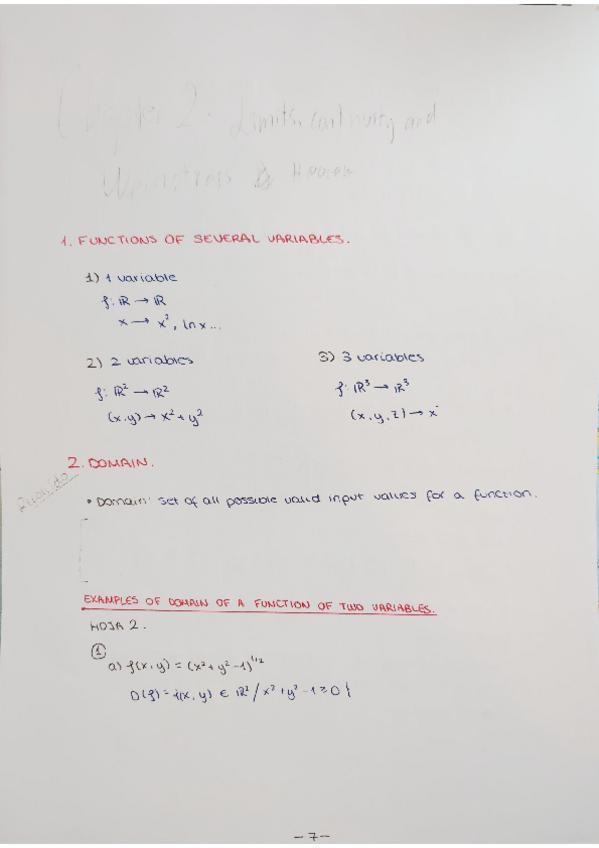 Chapter 2. Limits, continuity and
Weierstrass
1. FUNCTIONS OF SEVERAL VARIABLES.
1) 1 variable
f: ℝ → ℝ
x → x², ln x...
2) 2 variables
f: ℝ² → ℝ²
(x,y) → x² + y²
3) 3 variables
f: ℝ³ → ℝ³
(x, y, z) → x
2. DOMAIN.
• Domain: set of all possible valid input values for a function.
EXAMPLES OF DOMAIN OF A FUNCTION OF TWO VARIABLES.
HOJA 2.
①
a) f(x,y) = (x² + y² - 1)^1/2
D(f) = {(x, y) ∈ ℝ² / x² + y² - 1 ≥ 0}
- 7 -